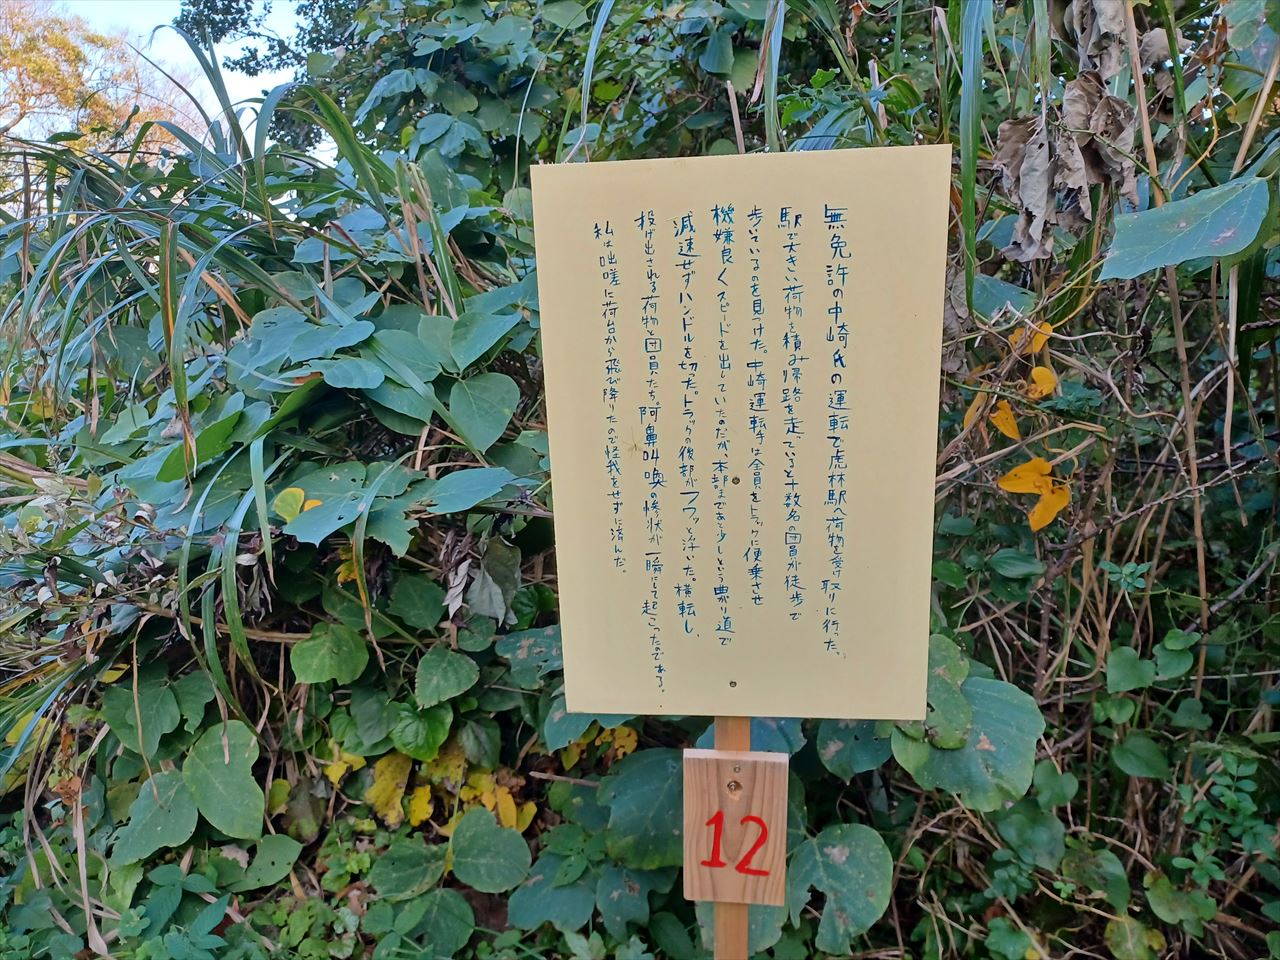 無免許の中崎氏の運転で虎林駅へ荷物を受け取りに行った。
駅で大きい荷物を積み帰路を走っていると十数名の団員が徒歩で
歩いているのを見つけた。中崎運転手は全員をトラックに便乗させ
機嫌良くスピードを出していたのだが、本部まであと少しという曲り道で
減速せずハンドルを切った。トラックの後部がフワッと浮いた。横転し、
投げ出される荷物と団員たち。阿鼻叫喚の惨状が一瞬にして起こったのである。
私は咄嗟に荷台から飛び降りたので怪我をせずに済んだ。
12